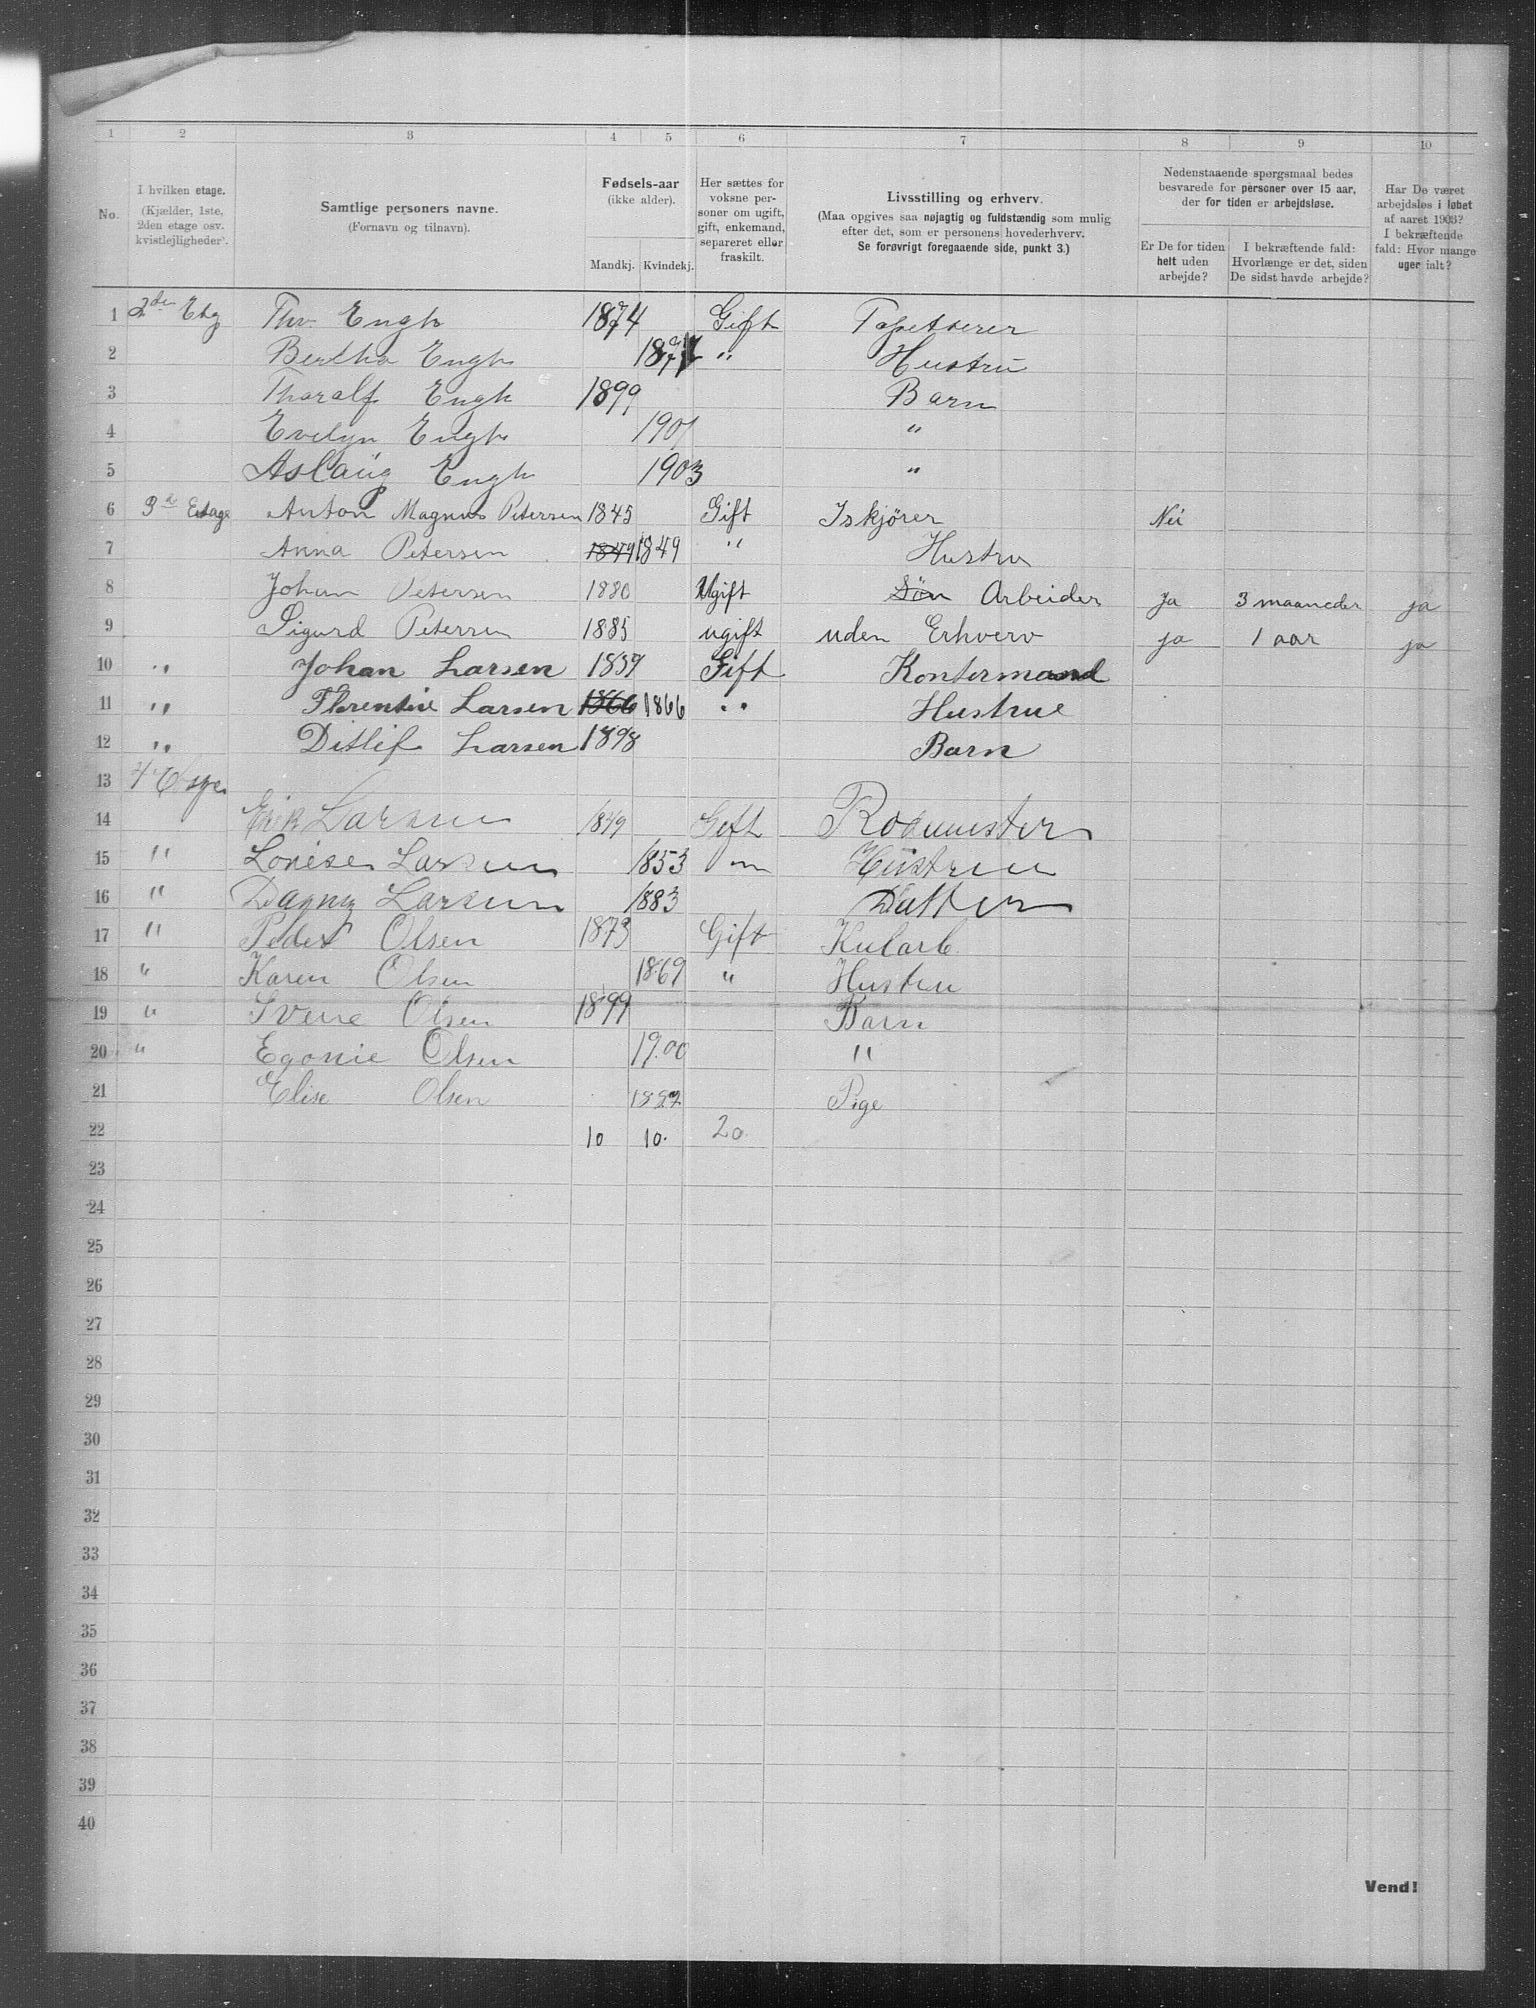 1 2 3 4 5 6 7 8 9 10
No.
I hvilken etage.
(Kjælder, 1ste,
2den etage osv.
kvistlejligheder).
Samtlige personers navne.
(Fornavn og tilnavn).
Fødsels-aar
(ikke alder).
Mandkj. Kvindekj.
Her sættes for
voksne per-
soner om ugift,
gift, enkemand,
separeret eller
fraskilt.
Livsstilling og erhverv.
(Maa opgives saa nøjagtig og fuldstændig som mulig
efter det, som er personens hovederhverv.
Se forøvrigt foregaaende side, punkt 3.)
Nedenstaaende spørgsmaal bedes
besvarede for personer over 15 aar,
der for tiden er arbejdsløse.
Er De for tiden
helt uden
arbejde?
I bekræftende fald:
Hvorlænge er det, siden
De sidst havde arbejde?
Har De været
arbejdsløs i løbet
af aaret 1903?
I bekræftende
fald: Hvor mange
uger ialt?
1 2den Etg Thv. Engh 1874 Gift Tapetserer
2 Bertha Engh " Hustru
3 Tharalf Engh 1899 Barn
4 Evelyn Engh 1901 "
5 Aslaug Engh 1903 "
6 3d Etage Anton Magnus Petersen 1845 Gift Iskjører Nei
7 Anna Petersen 1849 1849 " Hustru
8 Johan Petersen 1880 Ugift Søn Arbeider Ja 3 maaneder ja
9 Sigurd Petersen 1885 ugift uden Erhverv ja 1 aar ja
10 " Johan Larsen 1859 Gift Kontormand
11 " Florentine Larsen 1866 1866 " Hustrue
12 " Ditlef Larsen 1898 Barn
13 4 Etage
14 Erik Larsen 1849 Gift Rodemester
15 " Lovise Larsen 1853 " Hustru
16 " Dagny Larsen 1883 Datter
17 " Peder Olsen 1873 Gift Kularb.
18 " Karen Olsen 1869 " Hustru
19 " Sverre Olsen 1899 Barn
20 " Egonie Olsen 1900 "
21 Elise Olsen Pige
22 10 10. 20.
23
24
25
26
27
28
29
30
31
32
33
34
35
36
37
38
39
40
Vend!